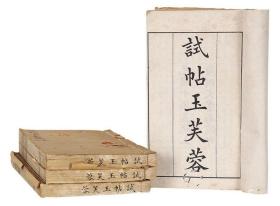 試帖玉芙蓉
試帖玉芙蓉
試帖玉芙蓉
試帖玉芙蓉